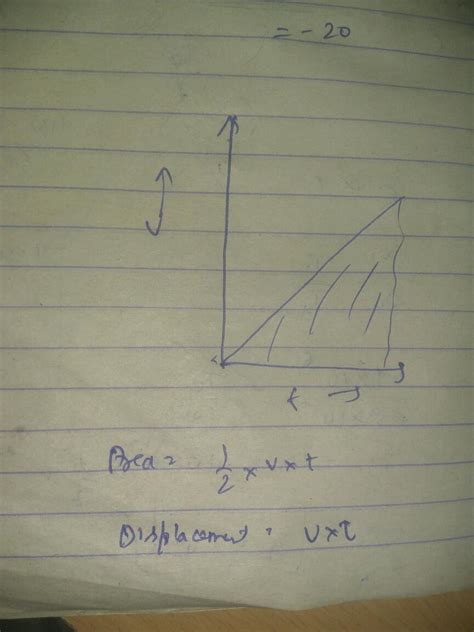 = - 20
t →
Area = 1/2 × v × t
Displacement = v × t